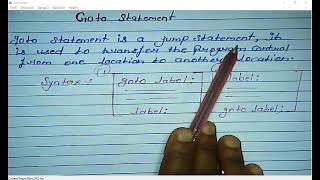 Goto Statement
Goto statement is a jump statement, It
is used to transfer the Program Control
from one location to another location.
Syntax:- goto label; label:
label: goto label;